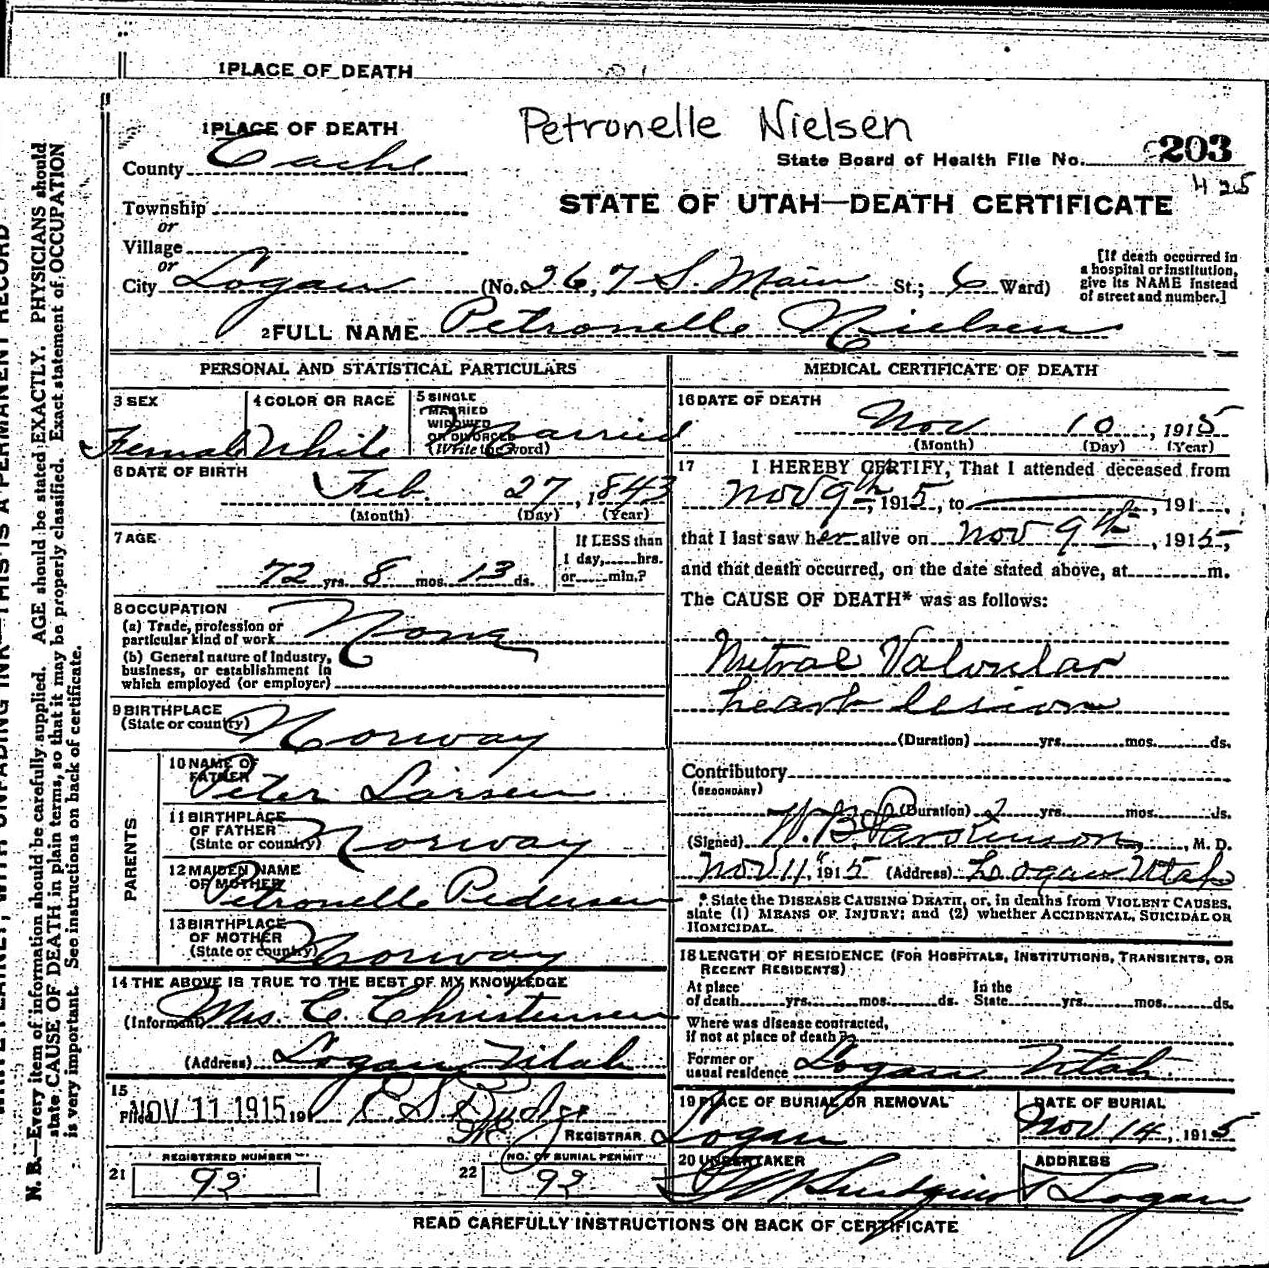 1 PLACE OF DEATH
Petronelle Nielsen
1 PLACE OF DEATH
County Cache
State Board of Health File No. 203
425
Township
or
STATE OF UTAH—DEATH CERTIFICATE
Village
or
City Logan (No. 267 S. Main St.; 6 Ward)
[If death occurred in
a hospital or institution,
give its NAME instead
of street and number.]
2 FULL NAME Petronelle Nielsen
PERSONAL AND STATISTICAL PARTICULARS
3 SEX
Female
4 COLOR OR RACE
White
5 SINGLE
MARRIED
WIDOWED
OR DIVORCED
(Write the word)
Married
6 DATE OF BIRTH
Feb. 27, 1843
(Month) (Day) (Year)
7 AGE
72 yrs. 8 mos. 13 ds.
If LESS than
1 day, hrs.
or min.?
8 OCCUPATION
(a) Trade, profession or
particular kind of work None
(b) General nature of industry,
business, or establishment in
which employed (or employer)
9 BIRTHPLACE
(State or country) Norway
PARENTS
10 NAME OF
FATHER Peter Larsen
11 BIRTHPLACE
OF FATHER
(State or country) Norway
12 MAIDEN NAME
OF MOTHER Petronelle Pedersen
13 BIRTHPLACE
OF MOTHER
(State or country) Norway
14 THE ABOVE IS TRUE TO THE BEST OF MY KNOWLEDGE
(Informant) Mrs. C. Christensen
(Address) Logan Utah
15
Filed NOV 11 1915, 191
REGISTRAR
REGISTERED NUMBER
21 92
NO. OF BURIAL PERMIT
22 92
MEDICAL CERTIFICATE OF DEATH
16 DATE OF DEATH
Nov 10, 1915
(Month) (Day) (Year)
17 I HEREBY CERTIFY, That I attended deceased from
Nov 9th, 1915, to , 191 ,
that I last saw her alive on Nov 9th, 1915,
and that death occurred, on the date stated above, at m.
The CAUSE OF DEATH* was as follows:
Mitral Valvular
heart lesion
(Duration) yrs. mos. ds.
Contributory
(SECONDARY)
(Duration) 2 yrs. mos. ds.
(Signed) W. B. Parkinson, M. D.
Nov 11, 1915 (Address) Logan Utah
* State the DISEASE CAUSING DEATH, or, in deaths from VIOLENT CAUSES,
state (1) MEANS OF INJURY; and (2) whether ACCIDENTAL, SUICIDAL OR
HOMICIDAL.
18 LENGTH OF RESIDENCE (FOR HOSPITALS, INSTITUTIONS, TRANSIENTS, OR
RECENT RESIDENTS)
At place
of death yrs. mos. ds.
In the
State yrs. mos. ds.
Where was disease contracted,
if not at place of death?
Former or
usual residence Logan Utah
19 PLACE OF BURIAL OR REMOVAL
Logan
DATE OF BURIAL
Nov 14, 1915
20 UNDERTAKER
ADDRESS
Logan
READ CAREFULLY INSTRUCTIONS ON BACK OF CERTIFICATE
N. B.—Every item of information should be carefully supplied. AGE should be stated EXACTLY. PHYSICIANS should
state CAUSE OF DEATH in plain terms, so that it may be properly classified. Exact statement of OCCUPATION
is very important. See instructions on back of certificate.